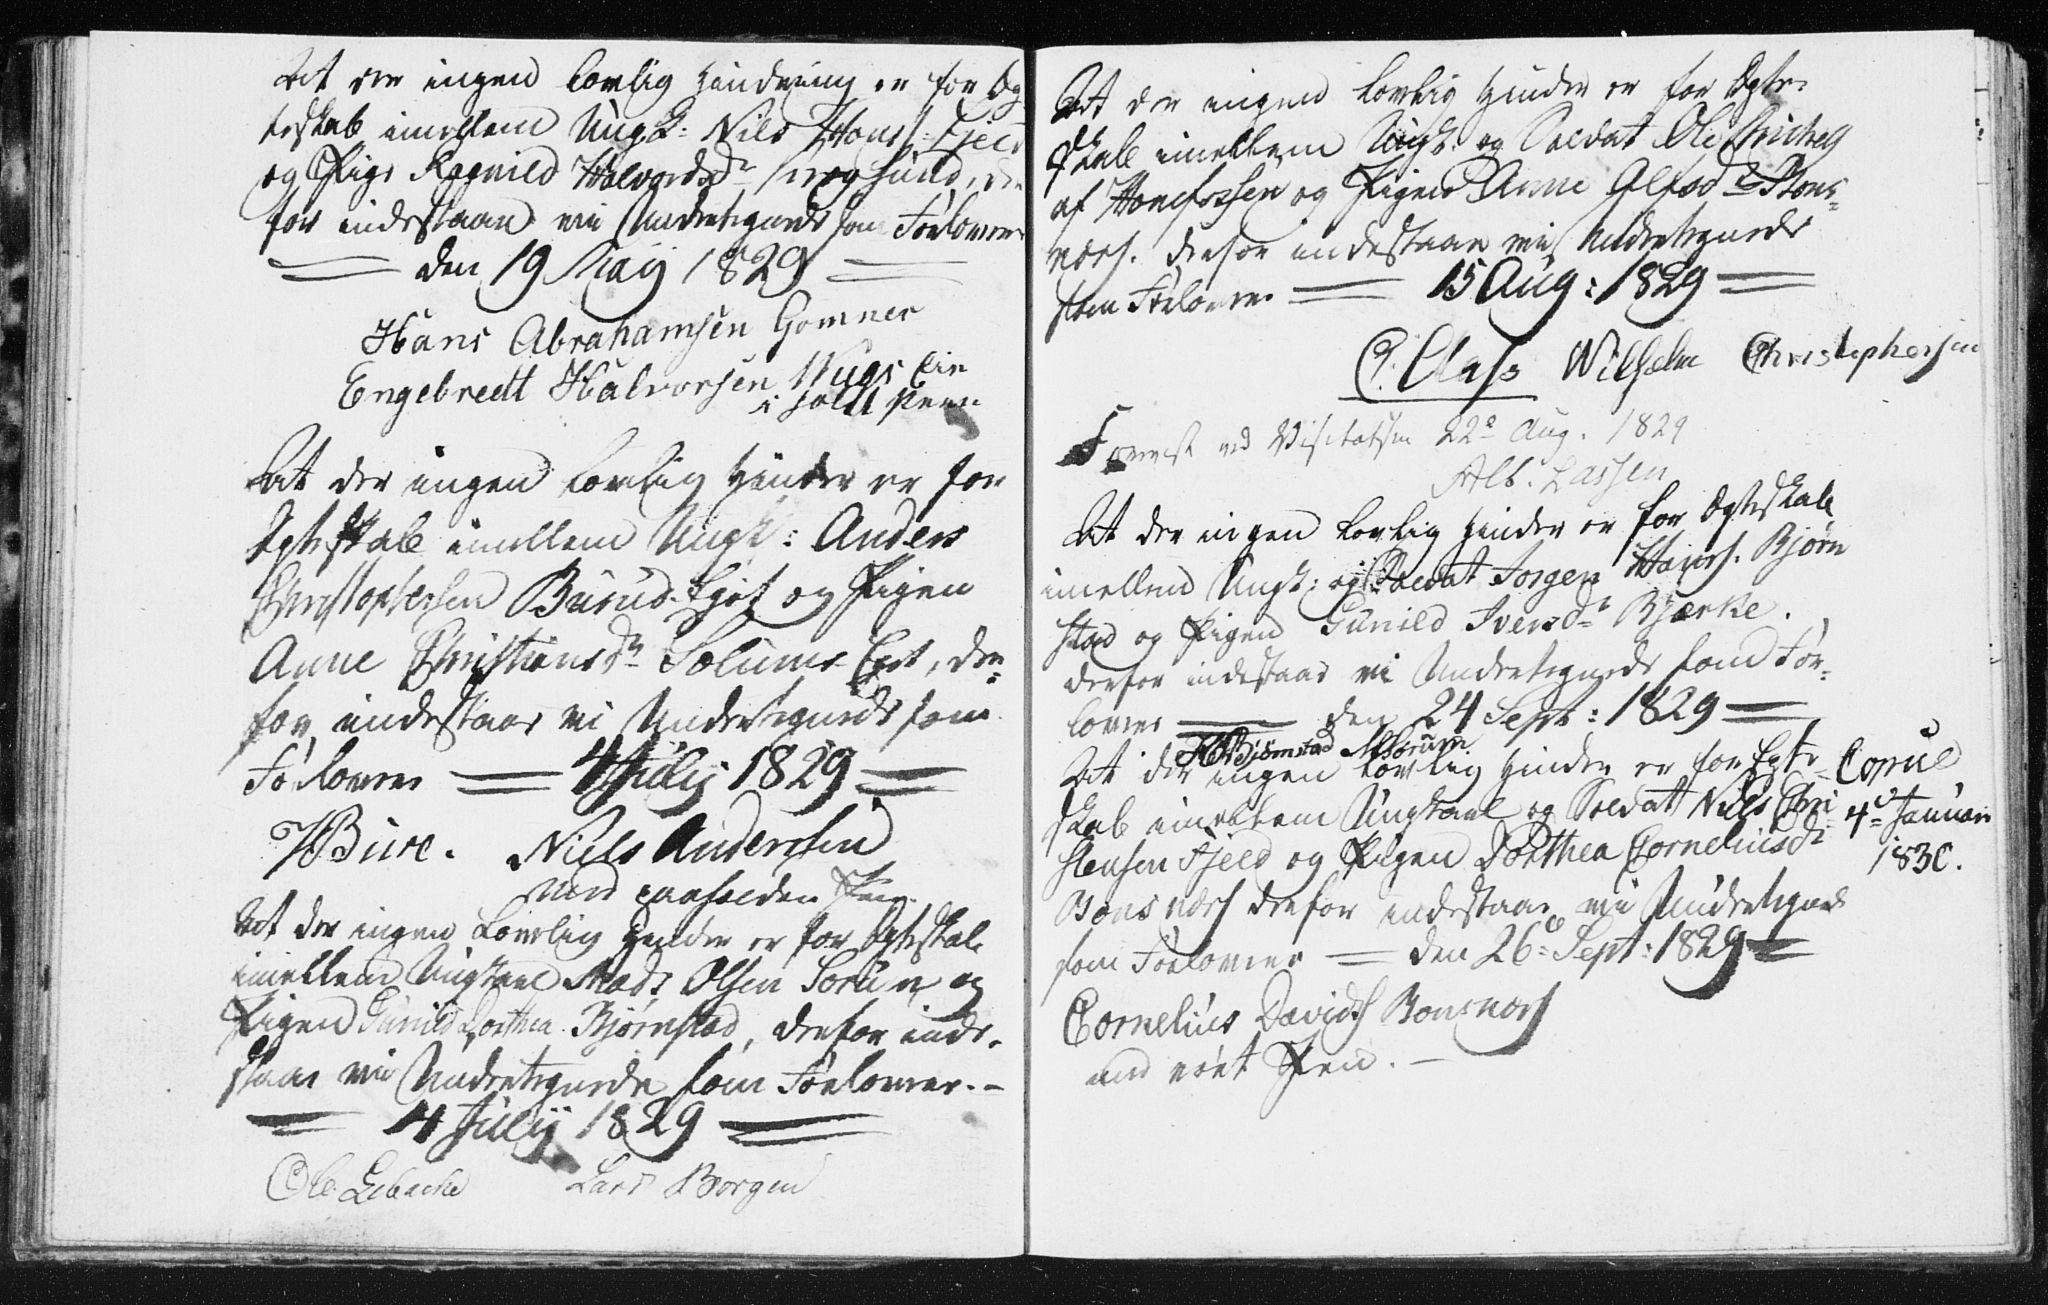 At der ingen lovlig Hindring er for Æg
teskab imellem Ungk: Nils Hans: Fjeld
og Pige Ragnild Halvorsd: Krogsund, der
for indestaar vi Undertegnede som Forlovere
den 19 May 1829
Hans Abrahamsen Gomner
Engebrecht Halvorsen
i hold Penn
At der ingen lovlig Hinder er for
Ægteskab imellem Ungk: Anders
Christophersen Burud-Ejet og Pigen
Anne Christiansdr Solums-Eyet, der=
for indestaar vi Undertegnede som
Forlovere 4 Juliy 1829
Bure. Niels Andersen
med paaholden Pen.
At der ingen Lovlig Hinder er for Ægteskab
imellem Ungkarl Mads Olsen Sorum og
Pigen Gunild Dorthea Bjørnstad, derfor inde-
staar vi Undertegnede som Forlovere.-
4 Juliy 1829
Ole Lebacke Lars Borgen
At der ingen lovlig Hinder er for Ægte-
skab imellem Ungk: og Soldat Ole
af Honefossen og Pigen Anne Olsd: Bons=
næs. derfor indestaar vi Undertegnede
som Forlovere 15 Aug: 1829
C: Clasen Wilhelm Christophersen
Foreviist ved Visitatsen 22de Aug. 1829
Alb. Lassen
At der ingen lovlig Hinder er for Ægteskab
imellem Ungk: og Soldat Jorgen Hans. Bjørn
stad og Pigen Gunild Iversdr Bjærke.
derfor indestaar vi Undertegnede som For-
lovere den 24 Sept: 1829
HH Bjørnstad M Sorum
At der ingen lovlig Hinder er for Egte-
skab imellem Ungkarl og Soldat Niels Chri
stensen Fjeld og Pigen Dorthea Corneliusdr
Bonsnæs derfor indestaar vi Undertegnede
som Forlovere den 26de Sept: 1829
Copul
4de Januari
1830.
Cornelius Davids Bonsnæs
med ført Pen.